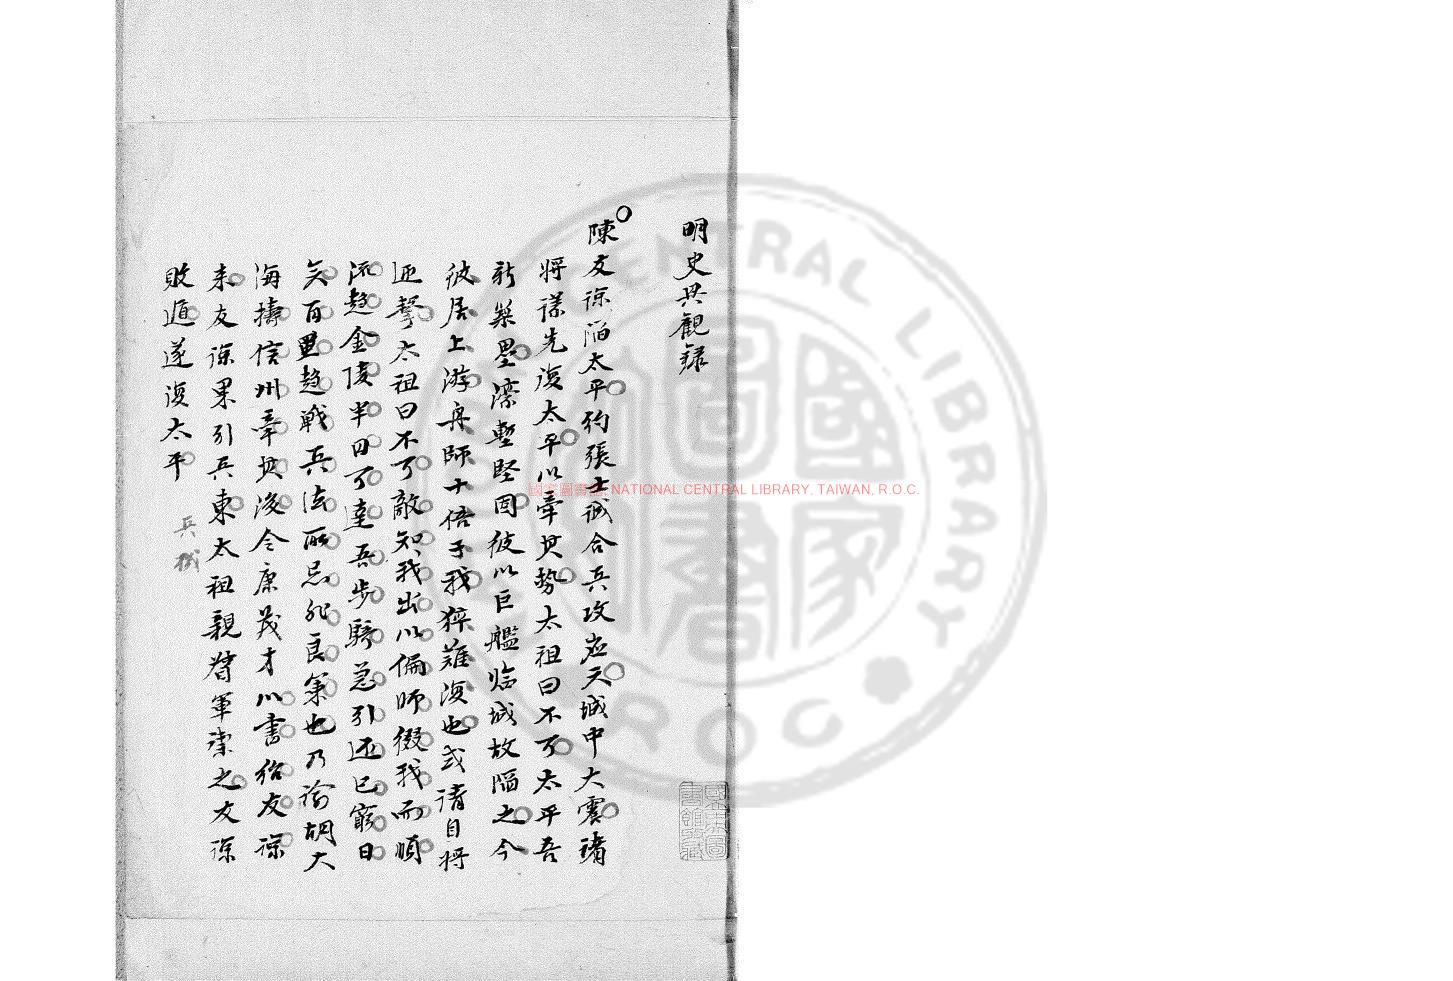 明史共觀錄
陳友諒陷太平約張士誠合兵攻應天城中大震諸
將議先復太平以牽其勢太祖曰不可太平吾
新築壘濠塹堅固彼以巨艦臨城故陷之今
彼居上游舟師十倍于我猝難復也或請自將
迎擊太祖曰不可敵知我出以偏師綴我而順
流趨金陵半日可達吾步騎急引還已窮日
矣百里趨戰兵法所忌非良策也乃諭胡大
海擣信州牽其後令康茂才以書紿友諒
來友諒果引兵東太祖親督軍禦之友諒
敗遁遂復太平
兵機
國家圖書館, NATIONAL CENTRAL LIBRARY, TAIWAN, R.O.C.
NATIONAL CENTRAL LIBRARY
R.O.C
國家圖書